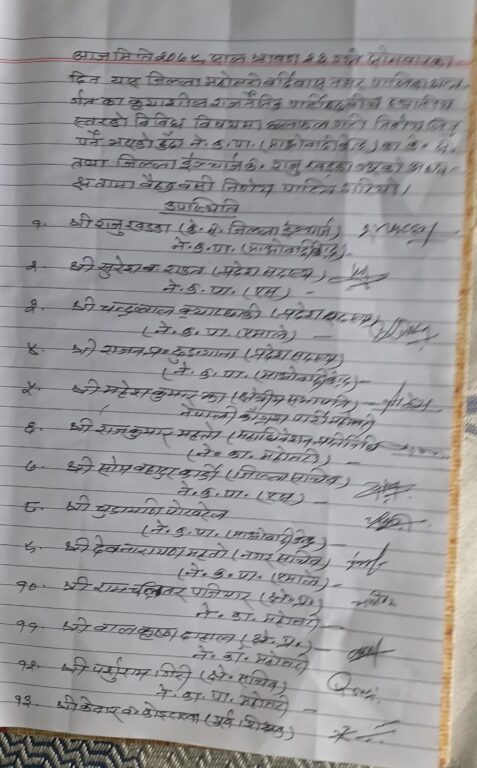 आज मिति २०७८ साल श्रावण २३ गते सोमबारका
दिन यस जिल्ला महोत्तरी बर्दिवास नगर पालिका
क्रियाशील राजनैतिक पार्टीहरुको
स्तरको विविध विषयमा छलफल गरी निर्णय लिनु
पर्ने भएको हुँदा ने.क.पा. (माओवादी केन्द्र) का के.स.
तथा जिल्ला इन्चार्ज क. राजु खड्का ज्यूको अध्य-
क्षतामा बैठक बसी निर्णय पारित गरियो।
उपस्थिति
१. श्री राजु खड्का (के.स. जिल्ला इन्चार्ज)
ने.क.पा. (माओवादी केन्द्र)-
२. श्री सुरेश व. राउत (प्रदेश सदस्य)
ने.क.पा. (एस) -
३. श्री चन्द्रलाल (प्रदेश सदस्य)
(ने.क.पा. एमाले) -
४. श्री राजन प्र. (प्रदेश सदस्य)
(ने.क.पा. (माओवादी केन्द्र) -
५. श्री महेश कुमार (क्षेत्रीय सभापति) -
नेपाली काँग्रेस पार्टी महोत्तरी
६. श्री राजकुमार महतो (महाधिवेशन प्रतिनिधि
(ने. का. महोत्तरी) -
७. श्री सोम बहादुर कार्की (जिल्ला सचिव)
ने.क.पा. (एस) -
८. श्री चुडामणि पोखरेल
(ने.क.पा. (माओवादी केन्द्र) -
९. श्री देवनारायण महतो (नगर सचिव)
(ने.क.पा. (एमाले) -
१०. श्री राम पजियार (क्षे.प्र.)
ने. का. महोत्तरी -
११. श्री बाल कृष्ण दाहाल (क्षे.प्र.)
ने. काँ. महोत्तरी -
१२. श्री पर्शुराम गिरी (क्षे. सचिव)
ने. का. पा. महोत्तरी -
१३. श्री केदार व. कोइराला (पूर्व शिक्षक)